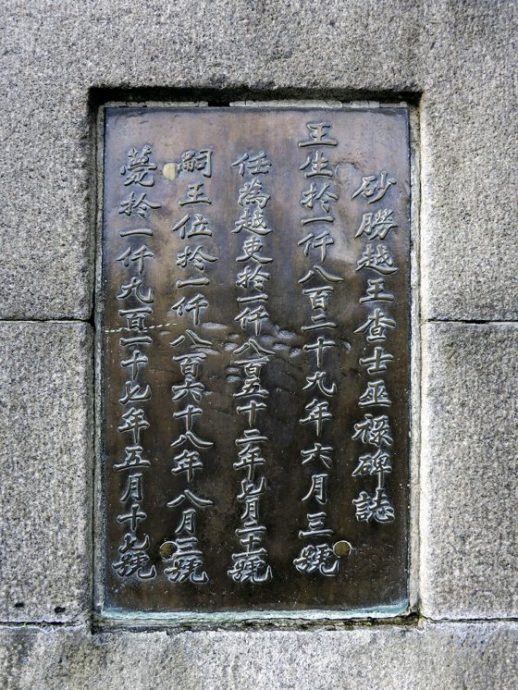 砂朥越王查士巫祿碑誌
王生於一仟八百二十九年六月三號
任為越吏於一仟八百五十二年七月二十一號
嗣王位於一仟八百六十八年八月三號
薨於一仟九百一十七年五月十七號